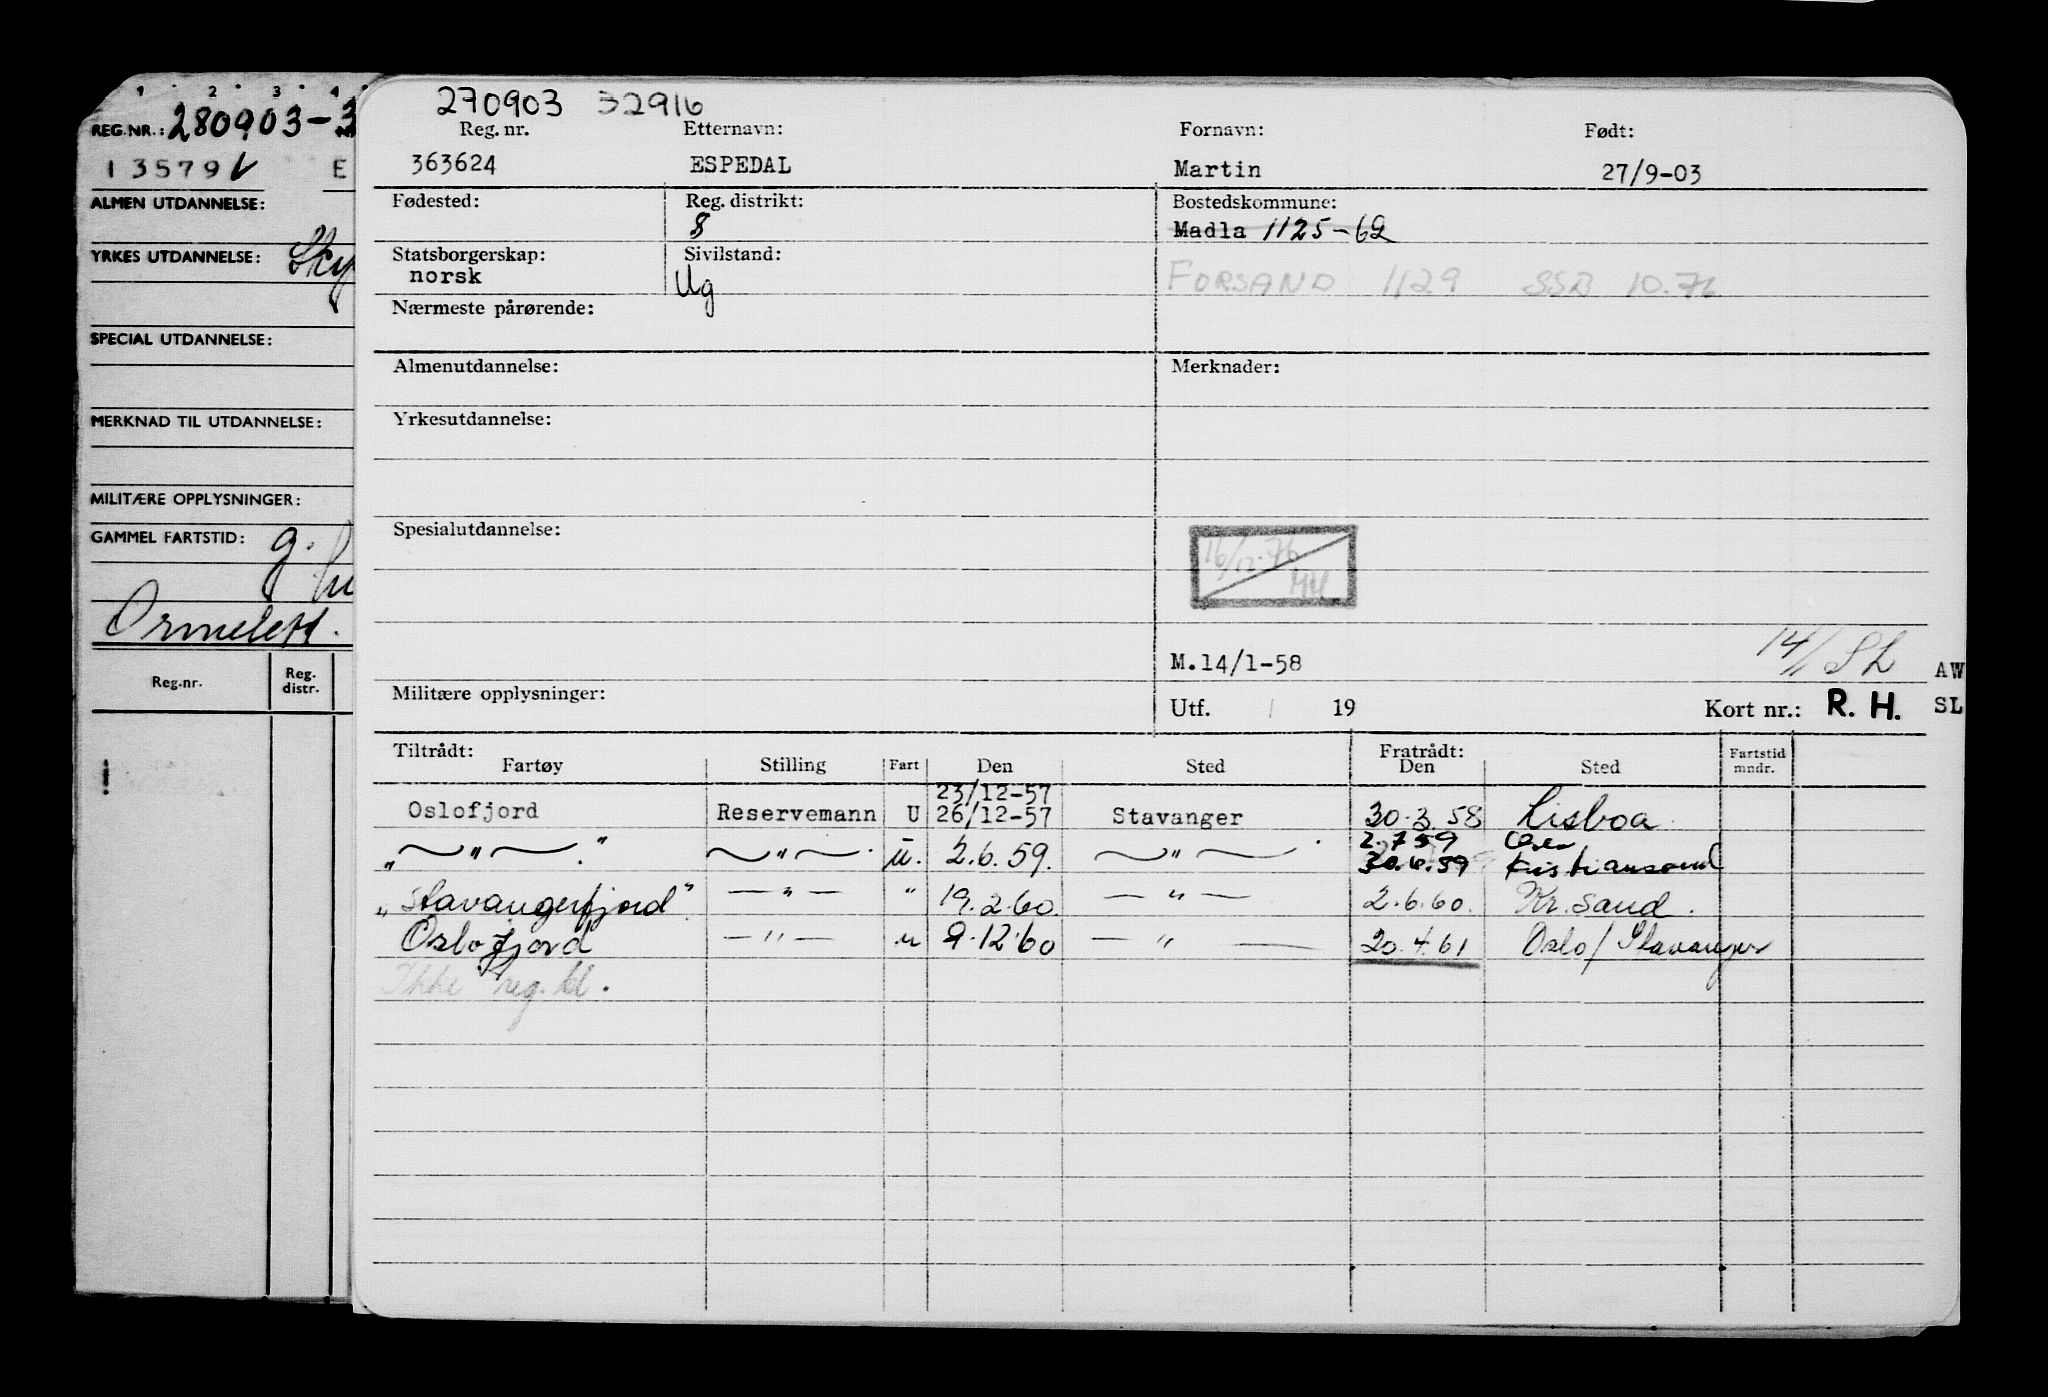 1 · 2 · 3 · 4
REG.NR.: 280903-3
13579 V E
ALMEN UTDANNELSE:
YRKES UTDANNELSE:
SPECIAL UTDANNELSE:
MERKNAD TIL UTDANNELSE:
MILITÆRE OPPLYSNINGER:
GAMMEL FARTSTID: g.
Reg.nr. Reg. distr.
270903 32916
Reg. nr. Etternavn: Fornavn: Født:
363624 ESPEDAL Martin 27/9-03
Fødested: Reg. distrikt: Bostedskommune:
8 Madla 1125-62
Statsborgerskap: Sivilstand:
norsk Ug FORSAND 1129 SSB 10.76
Nærmeste pårørende:
Almenutdannelse: Merknader:
Yrkesutdannelse:
Spesialutdannelse:
16/12.76
M.14/1-58 14/1 SL AW
Militære opplysninger: Utf. / 19 Kort nr.: R. H. SL
Tiltrådt: Fratrådt:
Fartøy Stilling Fart Den Sted Den Sted Fartstid mndr.
23/12-57
Oslofjord Reservemann U 26/12-57 Stavanger 30.3.58 Lisboa
2.7 59
„ — " — " — " — u. 2.6.59. — " — 30.6.59 Kristiansand
„Stavangerfjord" — " — " 19.2.60. — " — 2.6.60. Kr.sand.
Oslofjord — " — u 9.12.60 — " — 20.4.61 Oslo/Stavanger
Ikke reg. bl.